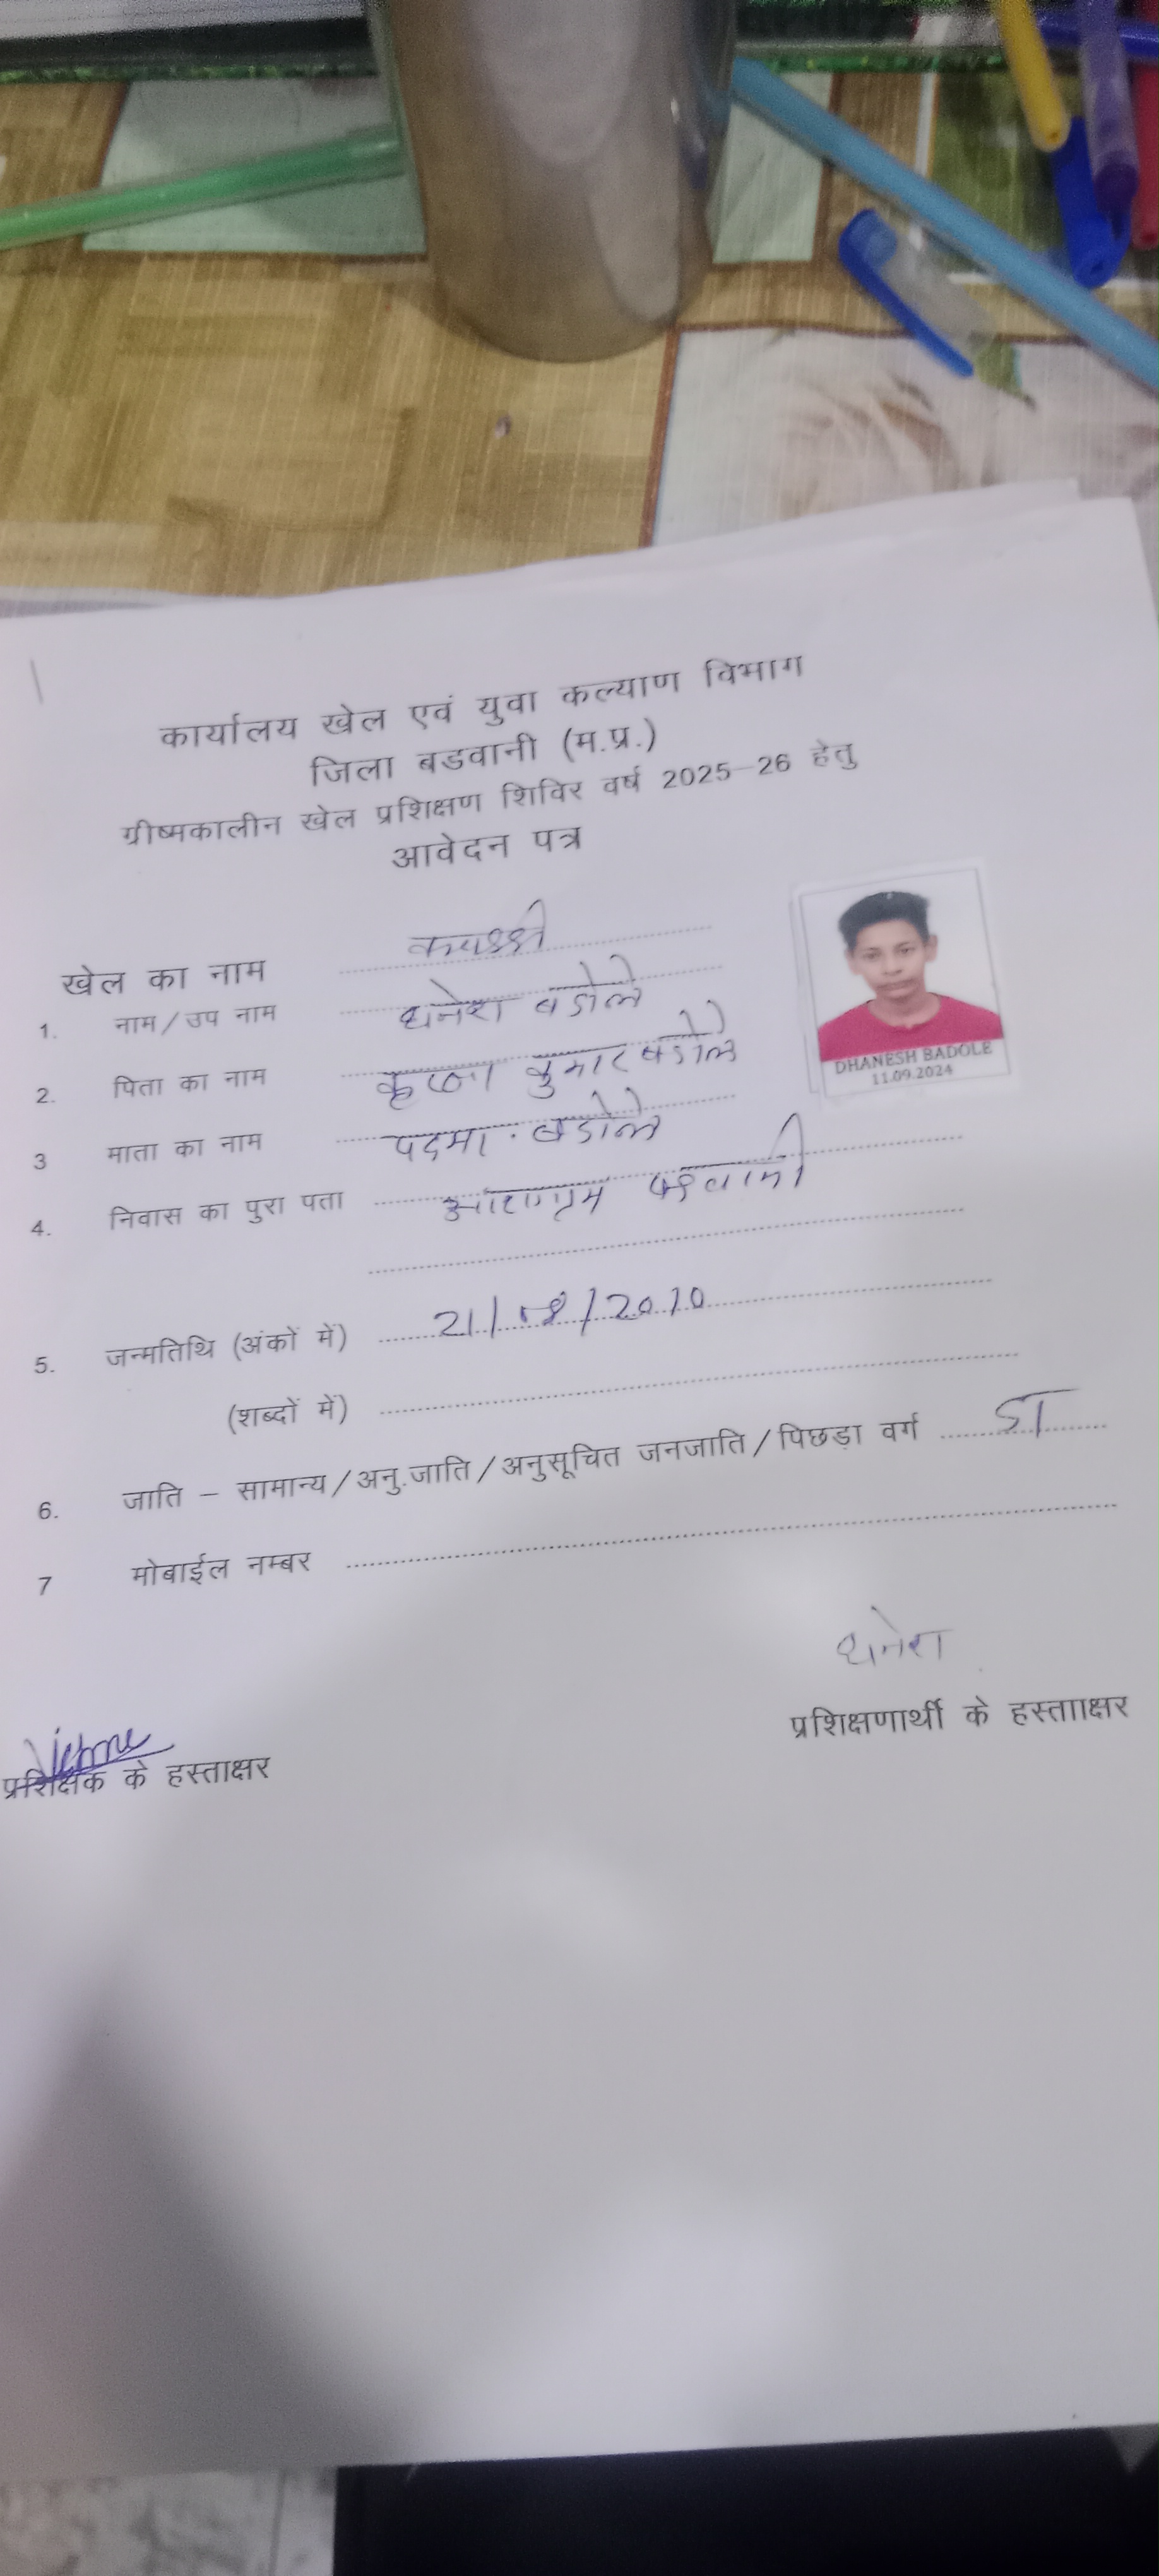 कार्यालय खेल एवं युवा कल्याण विभाग
जिला बडवानी (म.प्र.)
ग्रीष्मकालीन खेल प्रशिक्षण शिविर वर्ष 2025-26 हेतु
आवेदन पत्र
खेल का नाम
1. नाम/उप नाम धनेश बडोले
DHANESH BADOLE
11.09.2024
2. पिता का नाम कृष्णा कुमार बडोले
3 माता का नाम पदमा बडोले
4. निवास का पुरा पता
5. जन्मतिथि (अंकों में) 21/08/2010
(शब्दों में)
6. जाति – सामान्य/अनु.जाति/अनुसूचित जनजाति/पिछड़ा वर्ग ST
7 मोबाईल नम्बर
धनेश
प्रशिक्षणार्थी के हस्तााक्षर
प्रशिक्षक के हस्ताक्षर